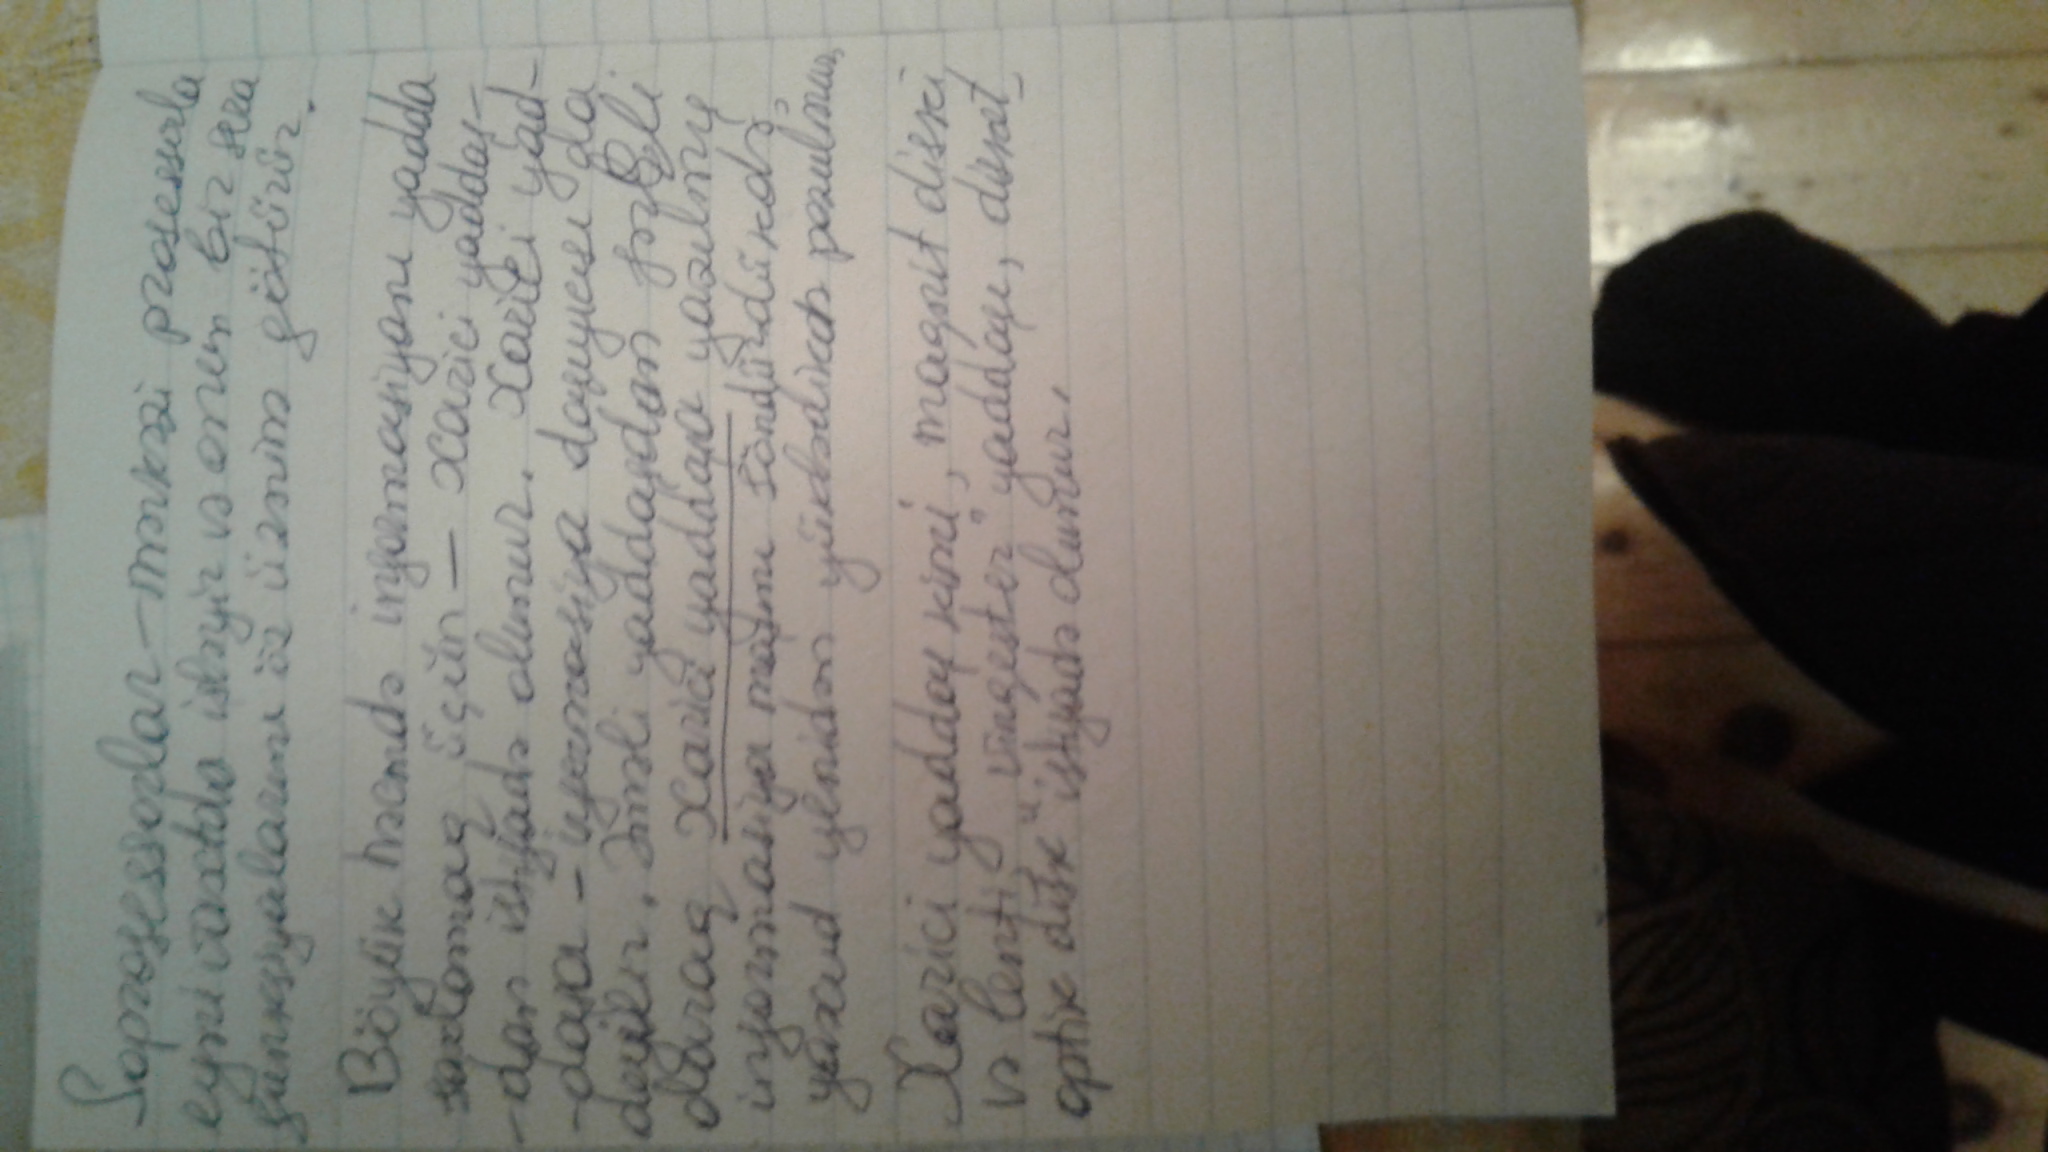 Soprosessorlar – mərkəzi prosessorla
eyni vaxtda işləyir və onun bir sıra
funksiyalarını öz üzərinə götürür.
Böyük həcmdə informasiyanı yadda
saxlamaq üçün – Xarici yaddaş-
-dan istifadə olunur. Xarici yad-
-daşa – informasiya daşıyıcısı da
deyilir. Əməli yaddaşdan fərqli
olaraq Xarici yaddaşa yazılmış
informasiya maşını söndürdükdə,
yaxud yenidən yüklədikdə pozulmur.
Xarici yaddaş kimi, maqnit diski,
və lenti, "vinçester" yaddaşı, disket,
optik disk" istifadə olunur.